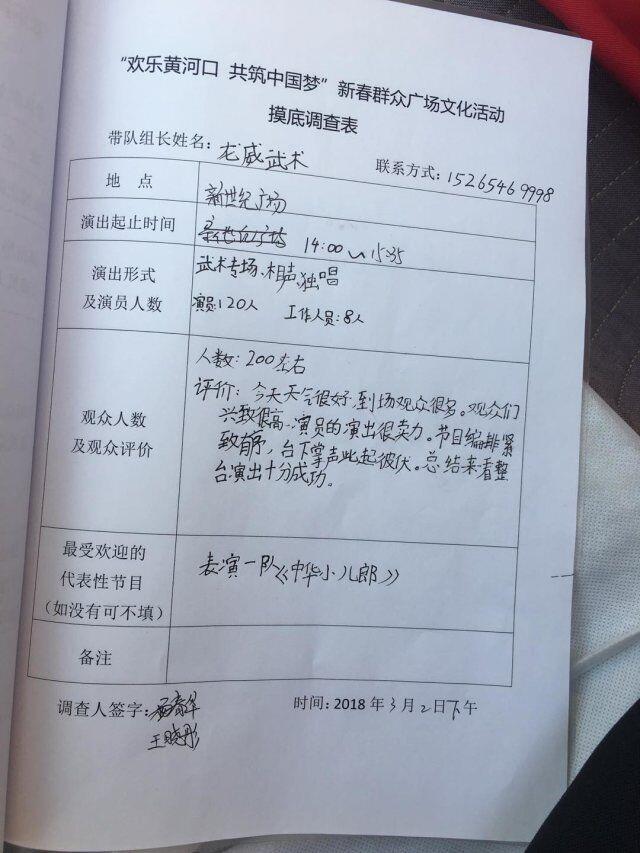 “欢乐黄河口 共筑中国梦”新春群众广场文化活动
摸底调查表
带队组长姓名：龙威武术 联系方式：15265469998
地 点 新世纪广场
演出起止时间 14:00~15:35
演出形式
及演员人数
武术专场、相声、独唱
演员：120人 工作人员：8人
观众人数
及观众评价
人数：200左右
评价：今天天气很好，到场观众很多。观众们
兴致很高，演员的演出很卖力。节目编排紧
致有序，台下掌声此起彼伏。总结来看整
台演出十分成功。
最受欢迎的
代表性节目
（如没有可不填）
表演一队《中华小儿郎》
备注
调查人签字： 时间：2018 年 3 月 2 日下午
王晓彤